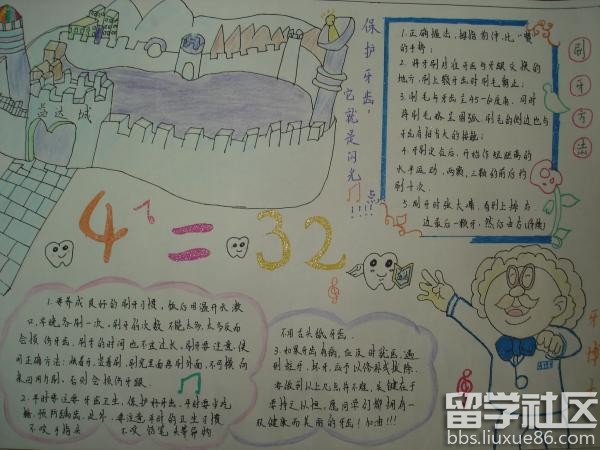 保护牙齿，
它就是闪光点
!!!!
益达城
刷牙方法
1.正确握法，拇指前伸，比"赞"
的手势；
2.将牙刷对准牙齿与牙龈交接的
地方，刷上颚牙齿时刷毛朝上；
3.刷毛与牙齿呈45-60度角，同时
将刷毛略呈圆弧，刷毛的侧边也与
牙齿有相当大的接触；
4.牙刷定位后，开始作短距离的
水平运动，两颗、三颗的前后约
刷十次
5.刷牙时张大嘴，看到上排右
边最后一颗牙，然后
4 = 32
1.要养成良好的刷牙习惯，饭后用温开水漱
口，早晚各刷一次，刷牙的次数不能太多，太多反而
会损伤牙齿。刷牙的时间也不宜过长，刷牙要注意，使
用正确方法：顺着牙，竖着刷，刷完里面再刷外面，不可横向
来回用力刷，否则会损伤牙龈。
2.平时要注意牙齿卫生，保护好牙齿，平时要少吃
糖，预防龋齿，此外，要注意平时的卫生习惯
不咬手指头 不咬铅笔头等异物
不用舌头舔牙齿。
3.如果牙齿有病，应及时就医，遇
到蛀牙，坏牙，应予以修补或拔除
要做到以上几点并不难，关键在于
要持之以恒，愿同学们都拥有一
双健康而美丽的牙齿！加油!!!
牙博士
留学社区
bbs.liuxue86.com